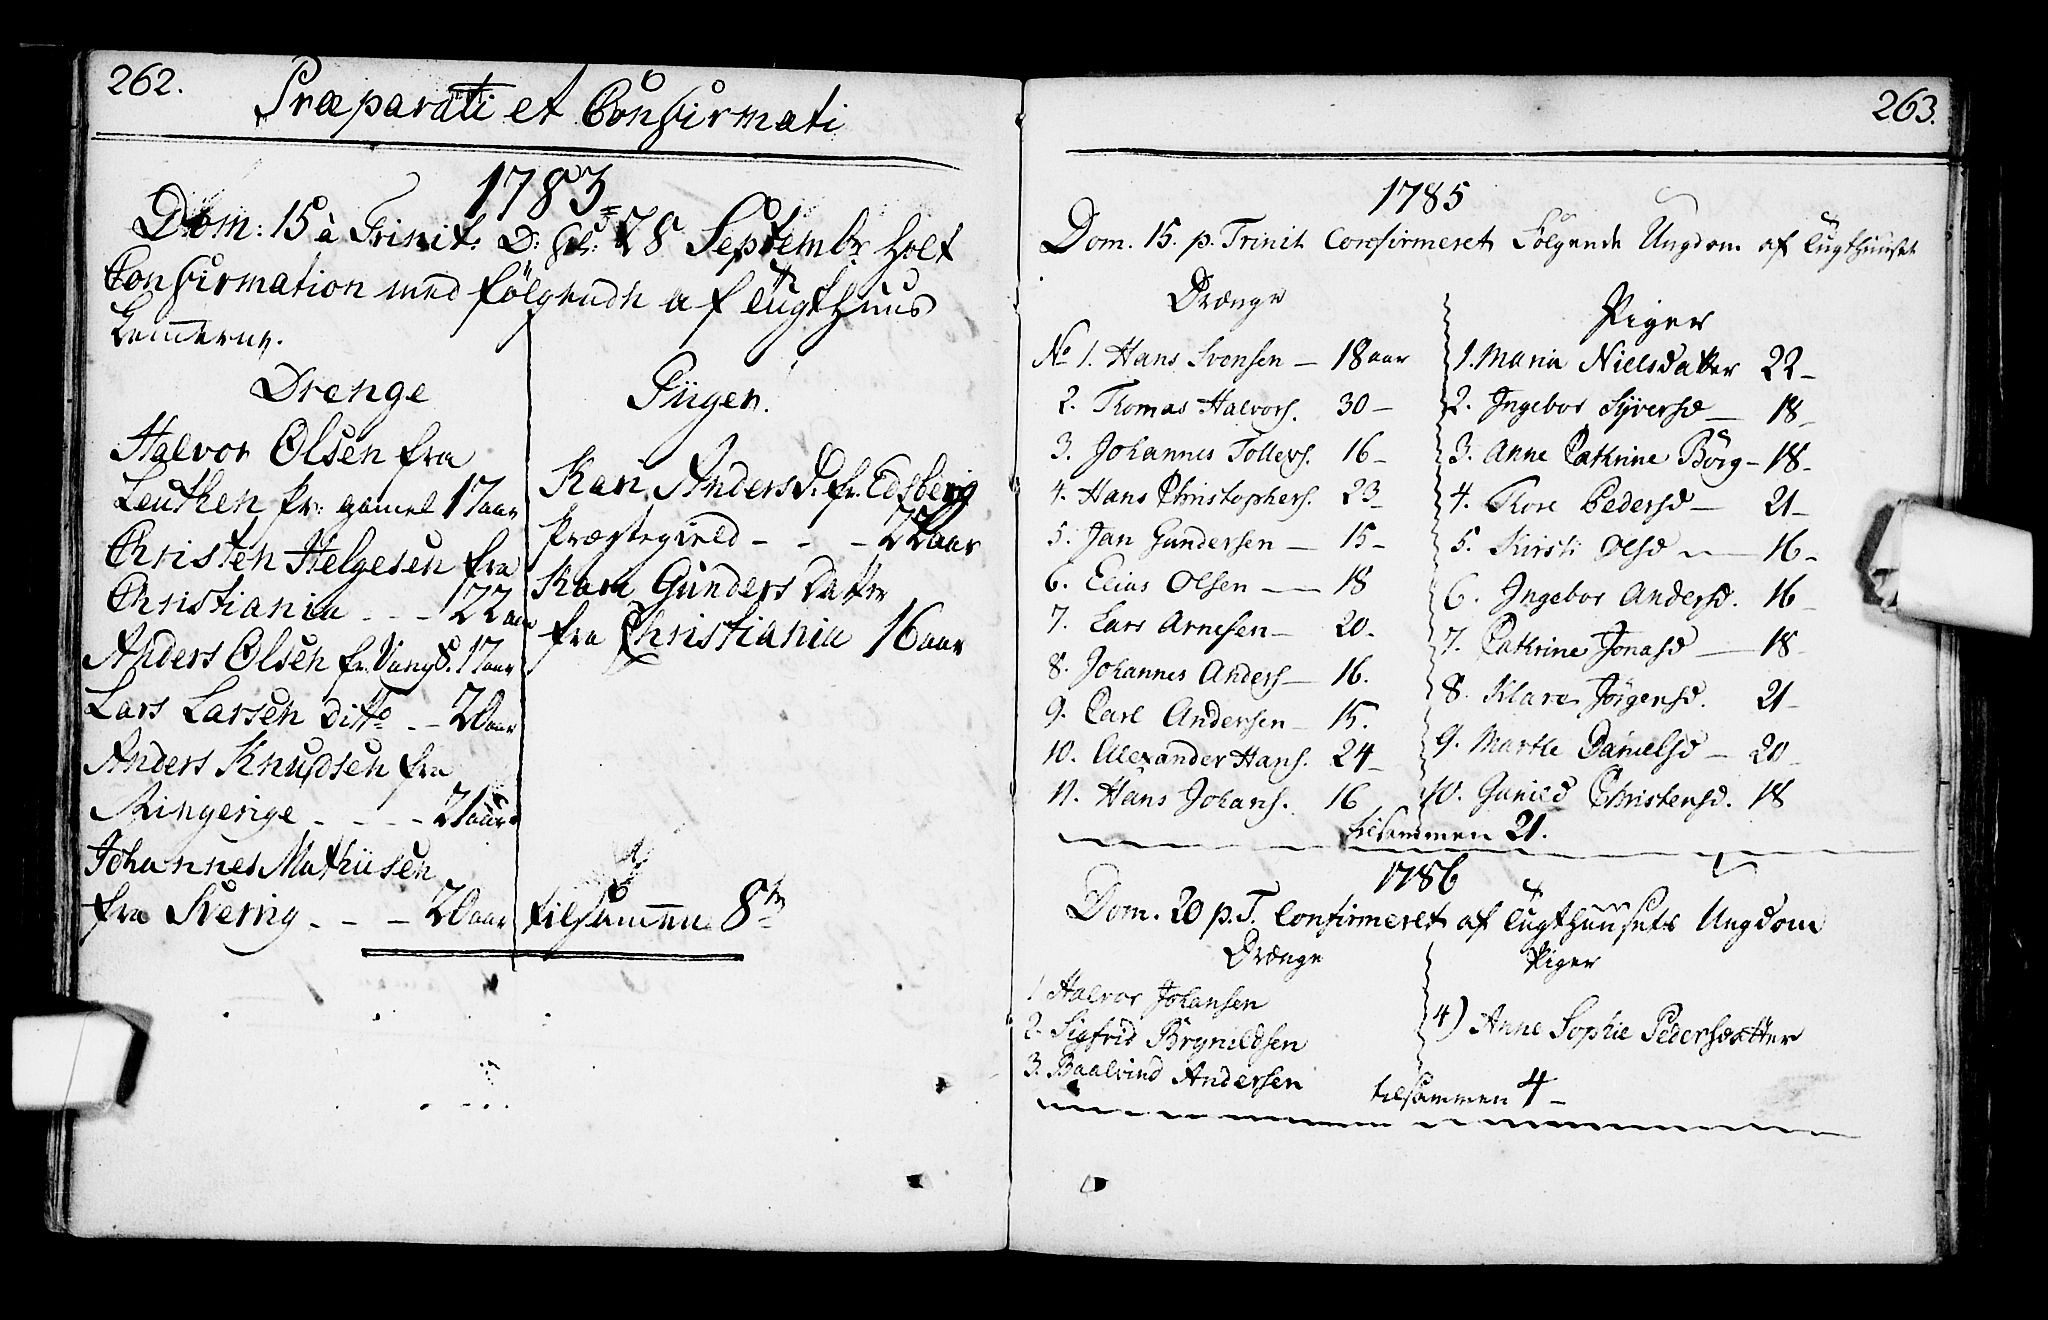 262.
Præparati et Confirmati
1783
Dom: 15 à Trinit: D: 28 Septembr holt
Confirmation med følgende af Tugthuus
Lemmerne.
Drenge
Halvor Olsen fra
Leuthen Pr: gamel 17 aar
Christen Helgesen fra
Christiania - - - 22 aar
Anders Olsen fr. Vang 17 aar
Lars Larsen Ditto - - 20 aar
Anders Knudsen fra
Ringerige - - - - 21 aar
Johannes Mathiisen
fra Sverrig - - - 20 aar
Piiger.
Kari Andersd. fr. Edsberg
Præstegield - - - 22 aar
Kari Gunders Datter
fra Christiania 16 aar
tilsamen 8te
263.
1785
Dom. 15. p. Trinit Confirmeret følgende Ungdom af Tugthuuset
Drænge
No 1. Hans Svensen — 18 aar
2. Thomas Halvors. 30 —
3. Johannes Tollevs. 16 —
4. Hans Christophers. 23 —
5. Jan Gundersen — 15 —
6. Elias Olsen — 18
7. Lars Arnesen — 20.
8. Johannes Anders — 16.
9. Carl Andersen — 15.
10. Alexander Hans. 24 —
11. Hans Johans. 16
Piger
1. Maria Nielsdatter 22 —
2. Ingebor Syversd — 18 —
3. Anne Cathrine Börg — 18 —
4. Thore Pedersd — 21 —
5. Kirsti Olsd — 16 —
6. Ingebor Andersd. 16 —
7. Cathrine Jonasd — 18 —
8. Klare Jörgensd. 21 —
9. Marthe Danielsd — 20 —
10. Gunild Christensd. 18
tilsammen 21.
1786
Dom. 20 p. T. Confirmeret af Tugthuusets Ungdom
Drænge
1 Halvor Johansen
2. Sigfrid Brynildsen
3. Baalvind Andersen
Piger
4) Anne Sophie Pedersdatter
tilsammen 4 —